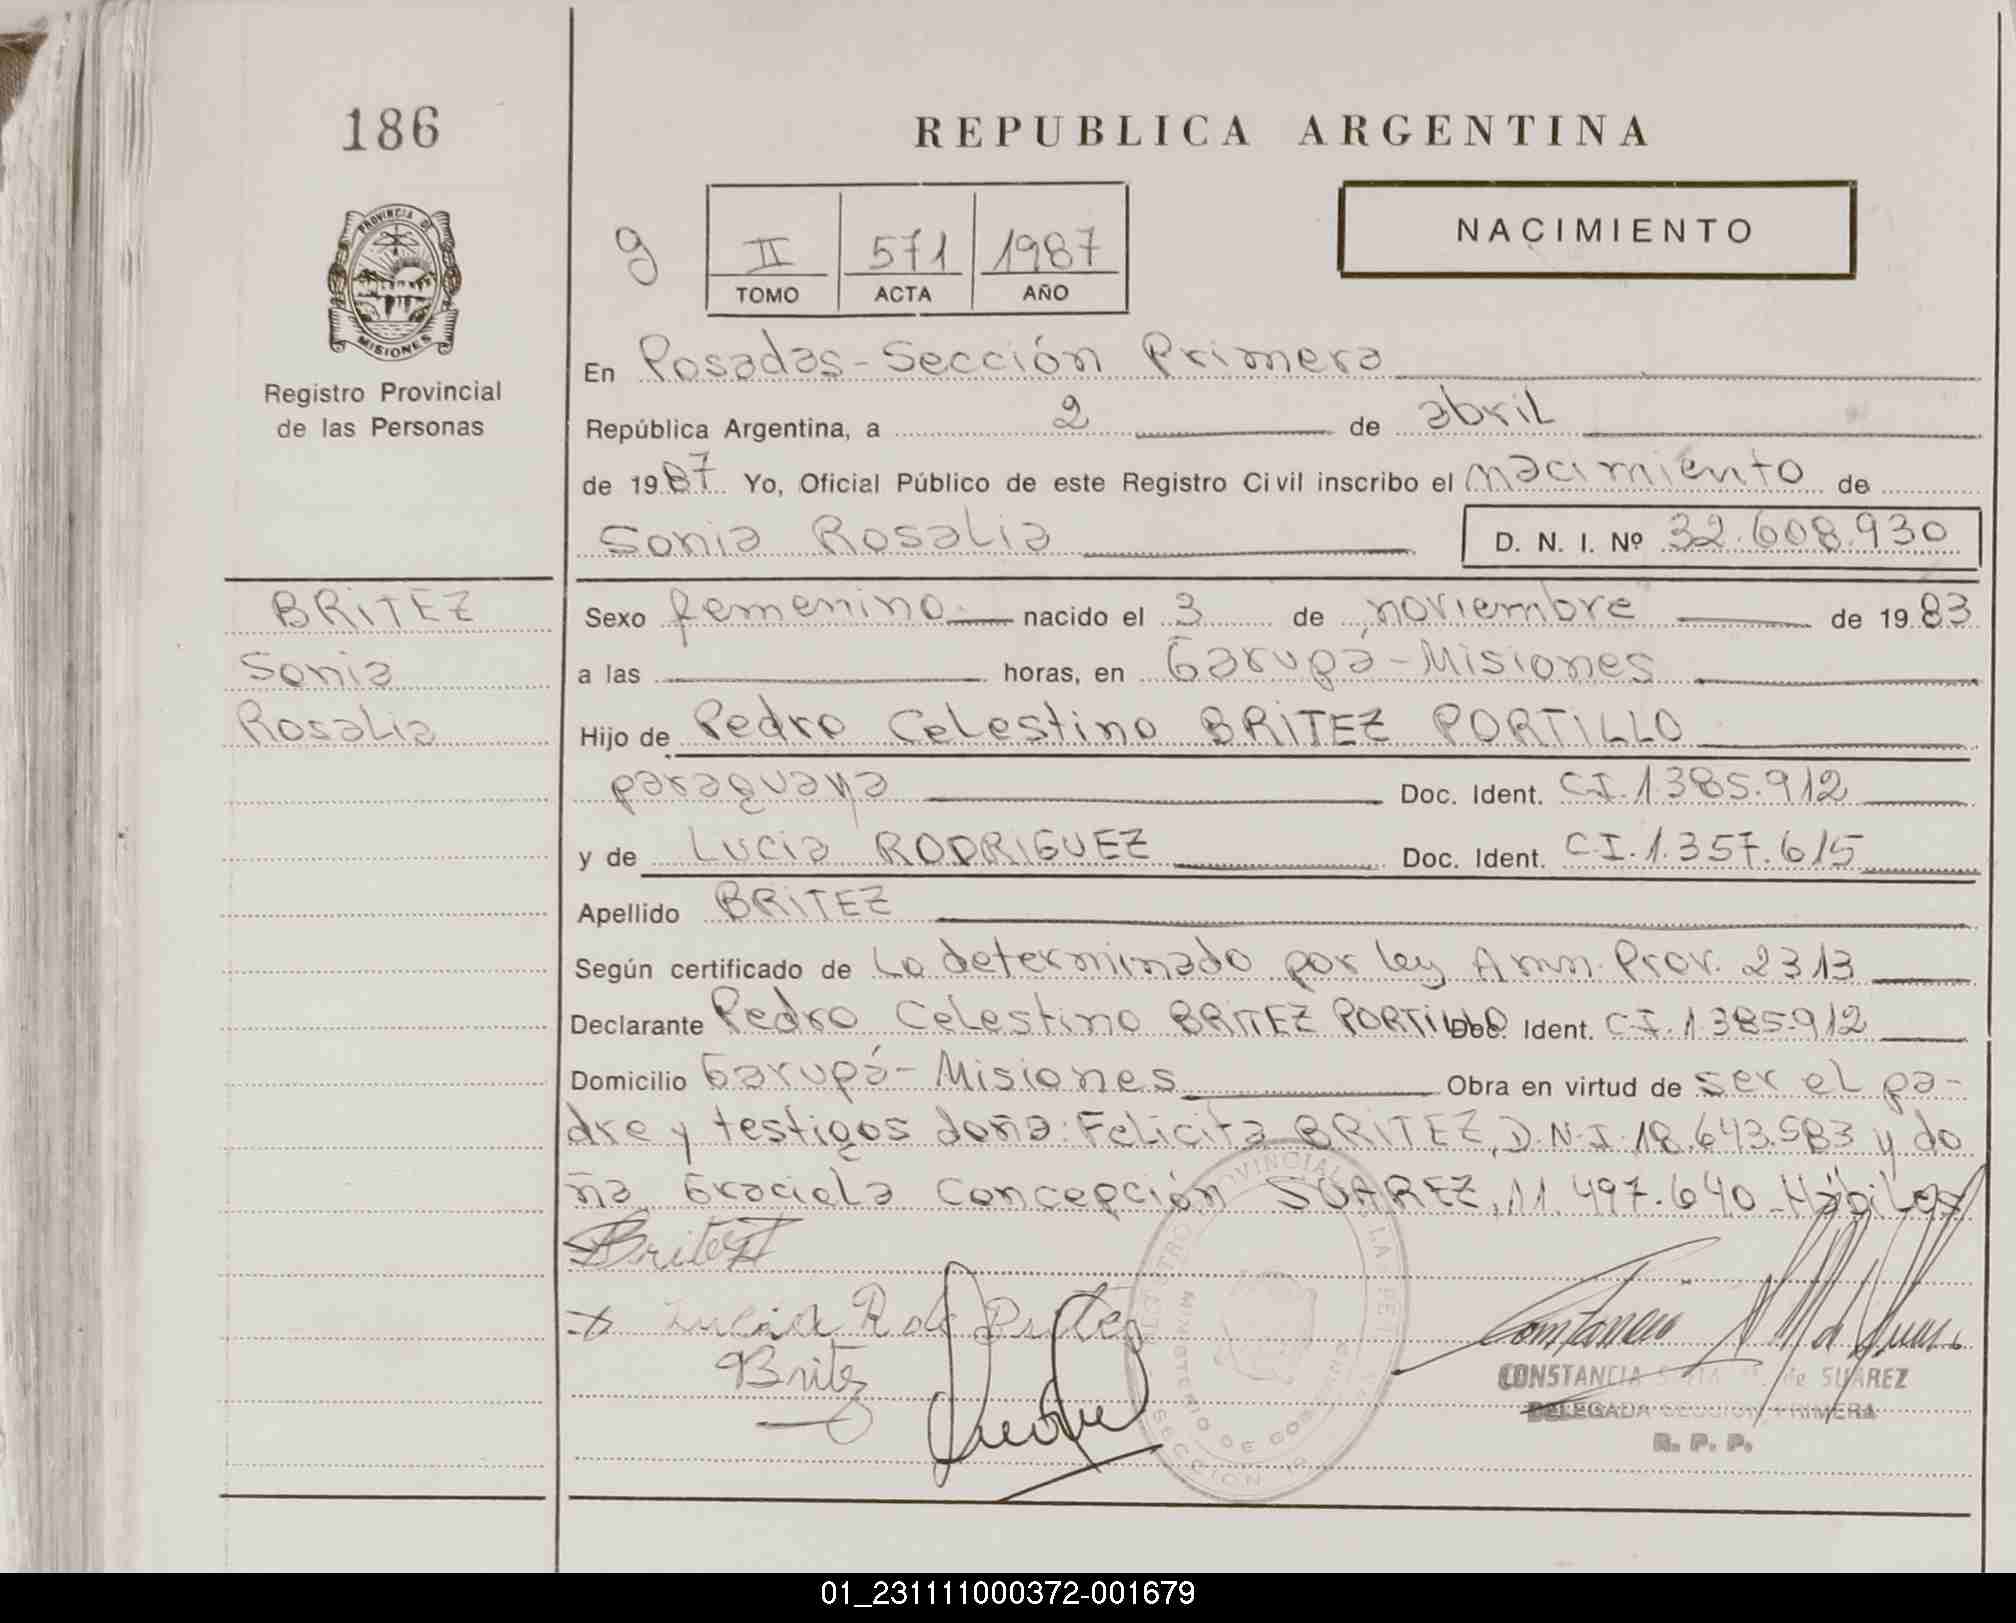 186
REPUBLICA ARGENTINA
PROVINCIA DE
MISIONES
Registro Provincial
de las Personas
g
II 571 1987
TOMO ACTA AÑO
NACIMIENTO
En Posadas-Sección Primera
República Argentina, a 2 de abril
de 1987 Yo, Oficial Público de este Registro Civil inscribo el nacimiento de
Sonia Rosalia D. N. I. Nº 32.608.930
BRITEZ
Sonia
Rosalia
Sexo femenino nacido el 3 de noviembre de 1983
a las horas, en Garupá-Misiones
Hijo de Pedro Celestino BRITEZ PORTILLO
paraguaya Doc. Ident. C.I. 1.385.912
y de Lucia RODRIGUEZ Doc. Ident. C.I. 1.357.615
Apellido BRITEZ
Según certificado de Lo determinado por ley Amn. Prov. 2313
Declarante Pedro Celestino BRITEZ PORTILLO Doc. Ident. C.I. 1.385.912
Domicilio Garupá-Misiones Obra en virtud de ser el pa-
dre y testigos doña: Felicita BRITEZ, D.N.I. 18.643.583 y do
ña Graciela Concepción SUAREZ, 11.497.640 Hábiles
Britez
Lucia R de Britez
Britez
MINISTERIO DE GOBIERNO
SECCION 1ª
CONSTANCIA de SUAREZ
DELEGADA SECCION PRIMERA
R. P. P.
01_231111000372-001679